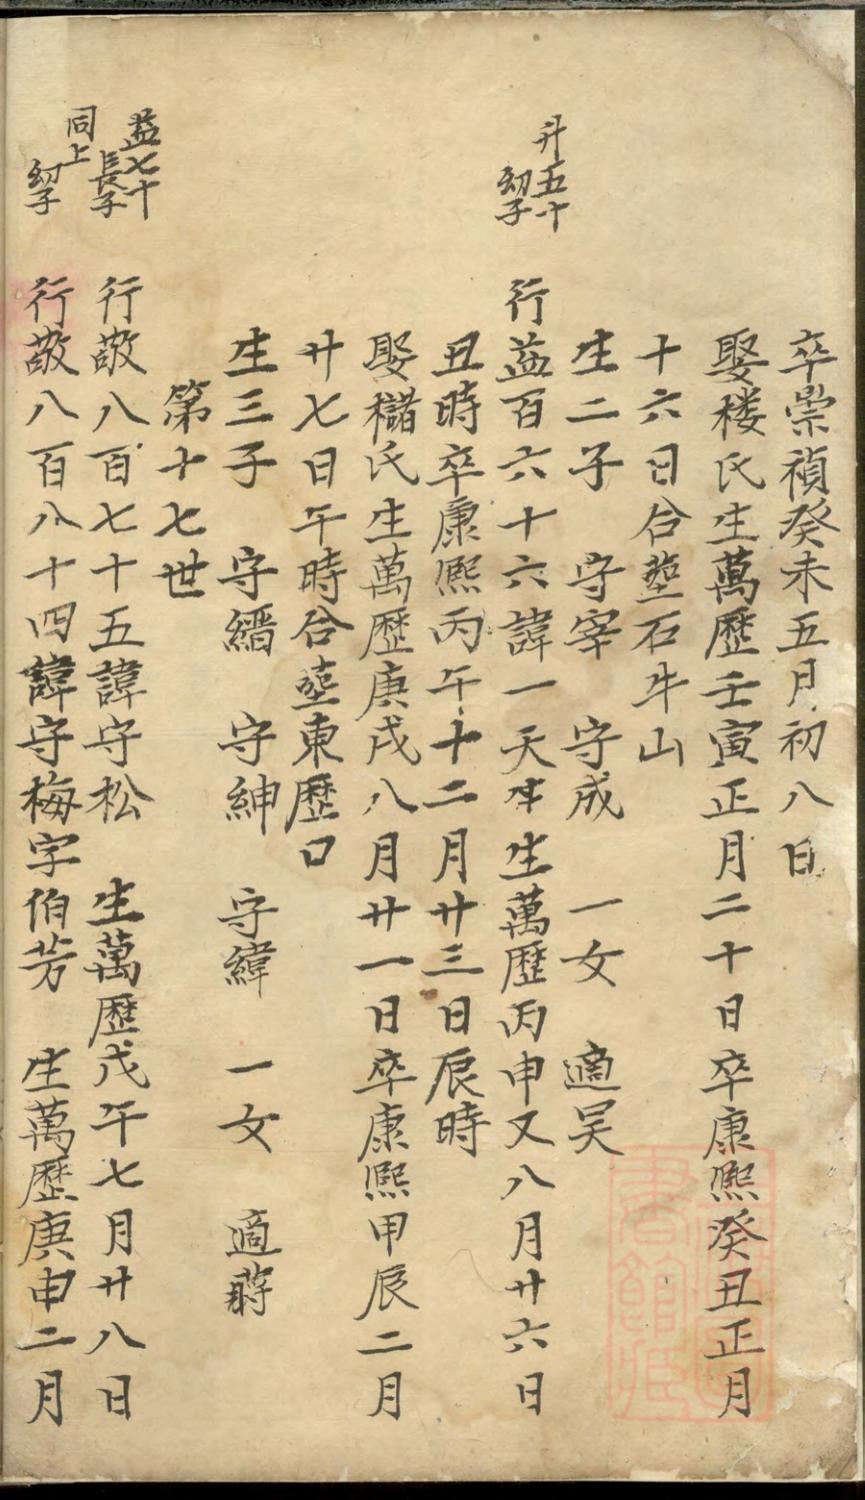 卒崇禎癸未五月初八日
娶楼氏生萬歷壬寅正月二十日卒康熙癸丑正月
十六日合塟石牛山
生二子 守宰 守成 一女 適吴
升五十
幼子
行益百六十六諱一天 生萬歷丙申又八月廿六日
丑時卒康熙丙午十二月廿三日辰時
娶櫧氏生萬歷庚戌八月廿一日卒康熙甲辰二月
廿七日午時合塟東歷口
生三子 守縉 守紳 守緯 一女 適蔣
第十七世
益七十
長子
行敬八百七十五諱守松 生萬歷戊午七月廿八日
同上
幼子
行敬八百八十四諱守梅字伯芳 生萬歷庚申二月
書館